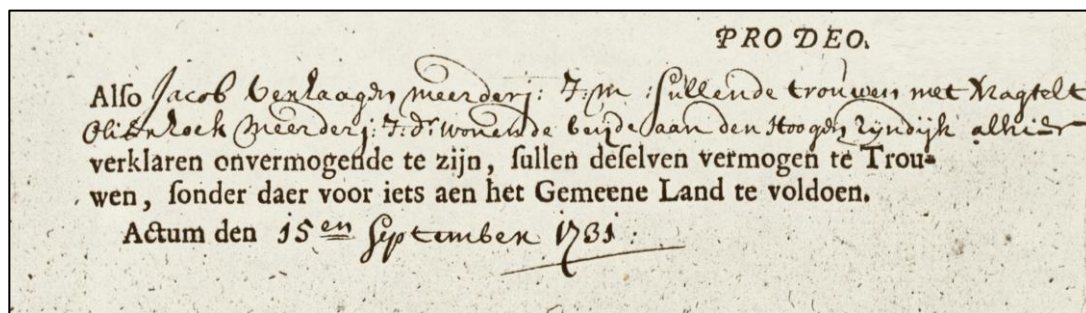 PRO DEO.
Also Jacob Verhaagen meerderj: J:m: sullende trouwen met Magtelt
Oliekoek meerderj: J: dr wonende beijde aan den Hoogen Rijndijk alhier
verklaren onvermogende te zijn, sullen deselven vermogen te Trou-
wen, sonder daer voor iets aen het Gemeene Land te voldoen.
Actum den 15en September 1731: